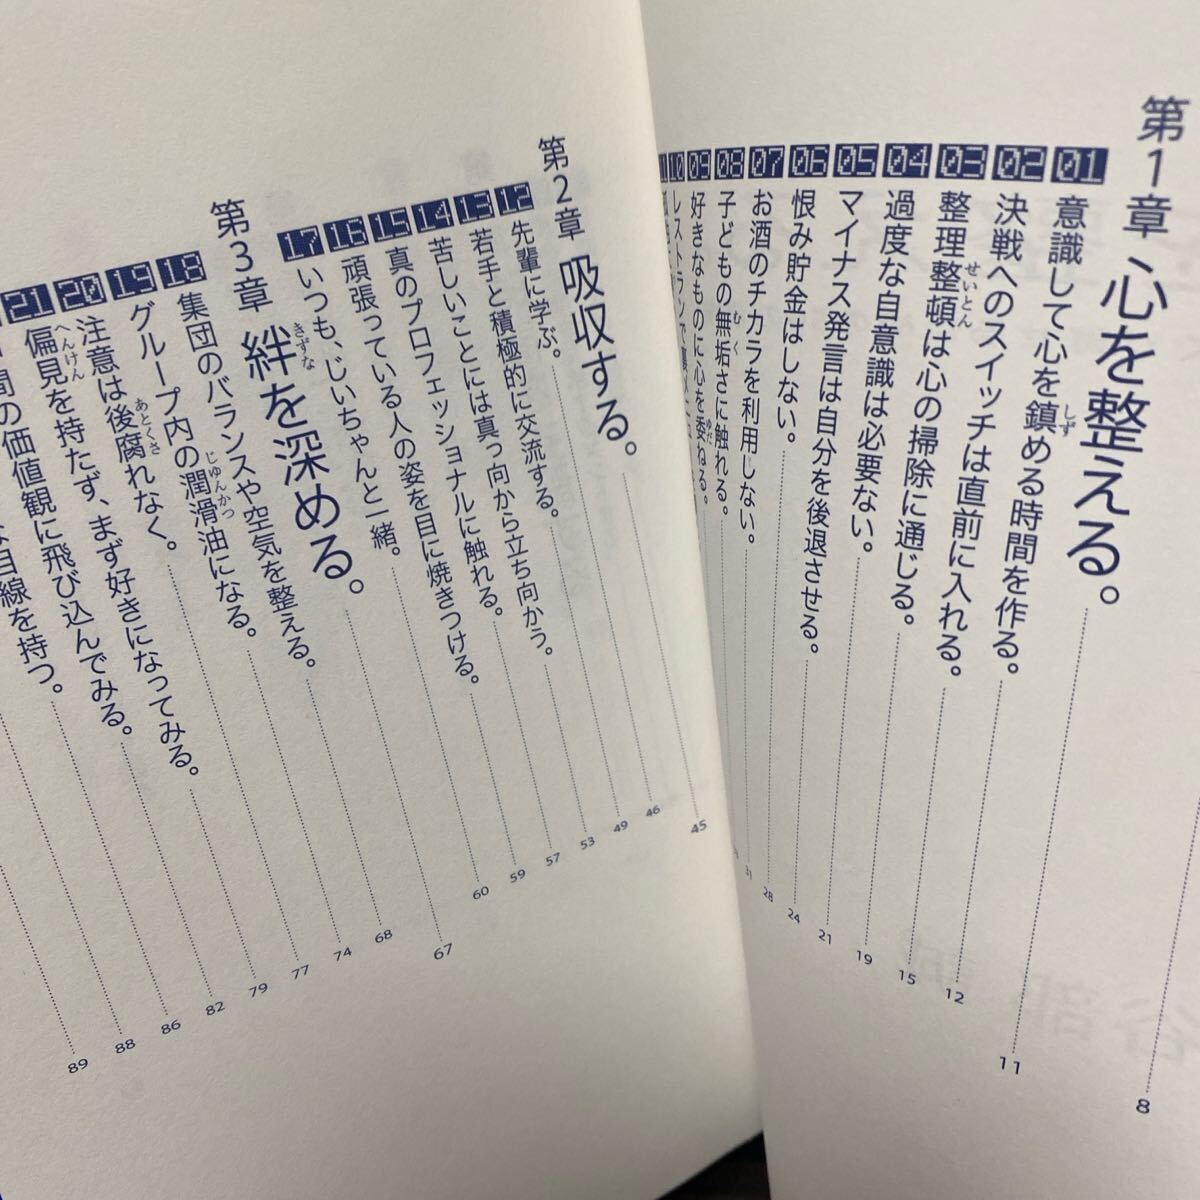 8
第1章 心を整える。 11
01 意識して心を鎮める時間を作る。 12
02 決戦へのスイッチは直前に入れる。 15
03 整理整頓は心の掃除に通じる。 19
04 過度な自意識は必要ない。 21
05 マイナス発言は自分を後退させる。 24
06 恨み貯金はしない。 28
07 お酒のチカラを利用しない。 31
08 子どもの無垢さに触れる。
09 好きなものに心を委ねる。
10 レストランで
第2章 吸収する。 45
12 先輩に学ぶ。 46
13 若手と積極的に交流する。 49
14 苦しいことには真っ向から立ち向かう。 53
15 真のプロフェッショナルに触れる。 57
16 頑張っている人の姿を目に焼きつける。 59
17 いつも、じいちゃんと一緒。 60
第3章 絆を深める。 67
18 集団のバランスや空気を整える。 68
19 グループ内の潤滑油になる。 74
20 注意は後腐れなく。 77
21 偏見を持たず、まず好きになってみる。 79
間の価値観に飛び込んでみる。 82
な目線を持つ。 86
88
89